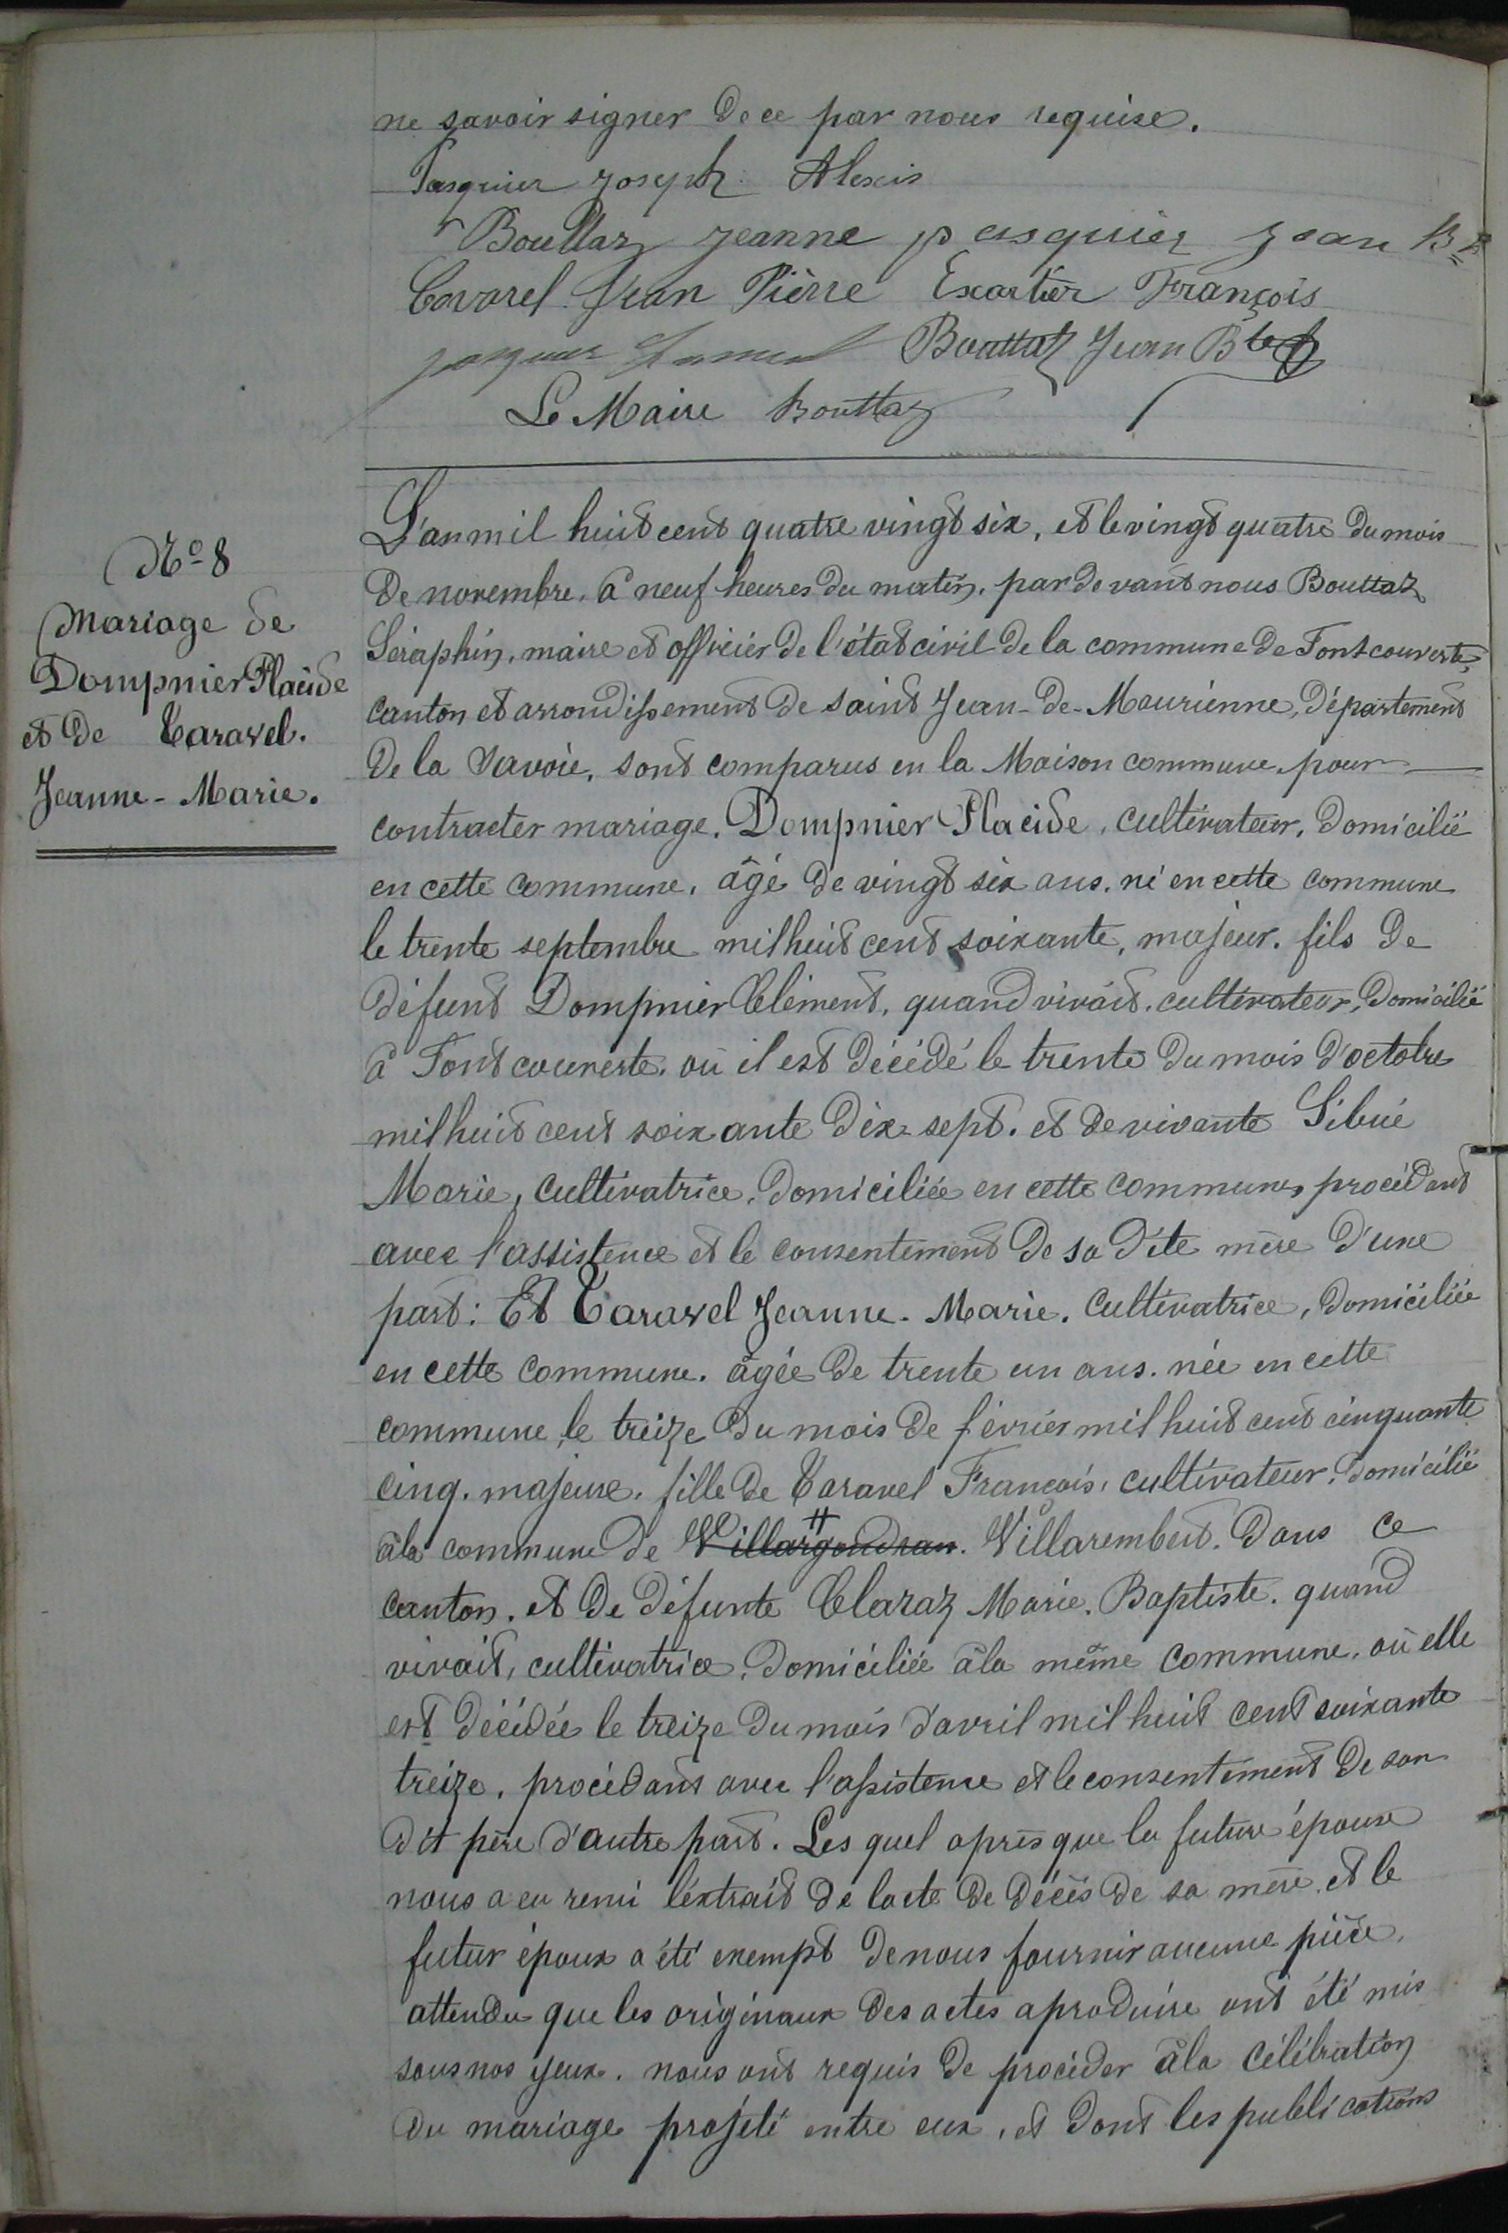 ne savoir signer de ce par nous requise.
Pasquier Joseph Alexis
Bouttaz Jeanne pasquier Jean Bte
Covarel Jean Pièrre Excartier François
pasquier Bouttaz Jean Bte
Le Maire Bouttaz
L'an mil huit cent quatre vingt six, et le vingt quatre du mois
de novembre, à neuf heures du matin, par devant nous Bouttaz
Séraphin, maire et officier de l'état civil de la commune de Fontcouverte,
canton et arrondissement de saint Jean-de-Maurienne, département
de la Savoie, sont comparus en la Maison commune pour
contracter mariage. Dompnier Placide, cultivateur, domicilié
en cette commune, âgé de vingt six ans, né en cette commune
le trente septembre mil huit cent soixante, majeur, fils de
défunt Dompnier Clément, quand vivait, cultivateur, domicilié
à Fontcouverte, où il est décédé le trente du mois d'octobre
mil huit cent soixante dix-sept, et de vivante Sibué
Marie, cultivatrice, domiciliée en cette commune, procédant
avec l'assistence et le consentement de sa dite mère d'une
part: Et Taravel Jeanne-Marie, cultivatrice, domiciliée
en cette commune, âgée de trente un ans, née en cette
commune, le treize du mois de février mil huit cent cinquante
cinq, majeure, fille de Taravel François, cultivateur, domicilié
à la commune de Villargondran. Villarembert. Dans ce
canton, et de défunte Claraz Marie-Baptiste, quand
vivait, cultivatrice, domiciliée à la même commune, où elle
est décédée le treize du mois d'avril mil huit cent soixante
treize, procédant avec l'assistence et le consentement de son
dit père d'autre part. Les quel après que la future épouse
nous a eu remi l'extrait de l'acte de décès de sa mère, et le
futur époux a été exempt de nous fournir aucune pièce,
attendu que les originaux des actes a produire ont été mis
sous nos yeux, nous ont requis de procéder à la célébration
du mariage projeté entre eux, et dont les publications
No 8
Mariage de
Dompnier Placide
et de Taravel.
Jeanne-Marie.